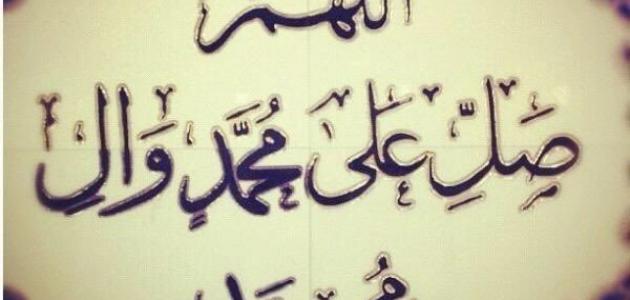 اللهم
صَلِّ عَلى مُحَمَّدٍ وَالِ